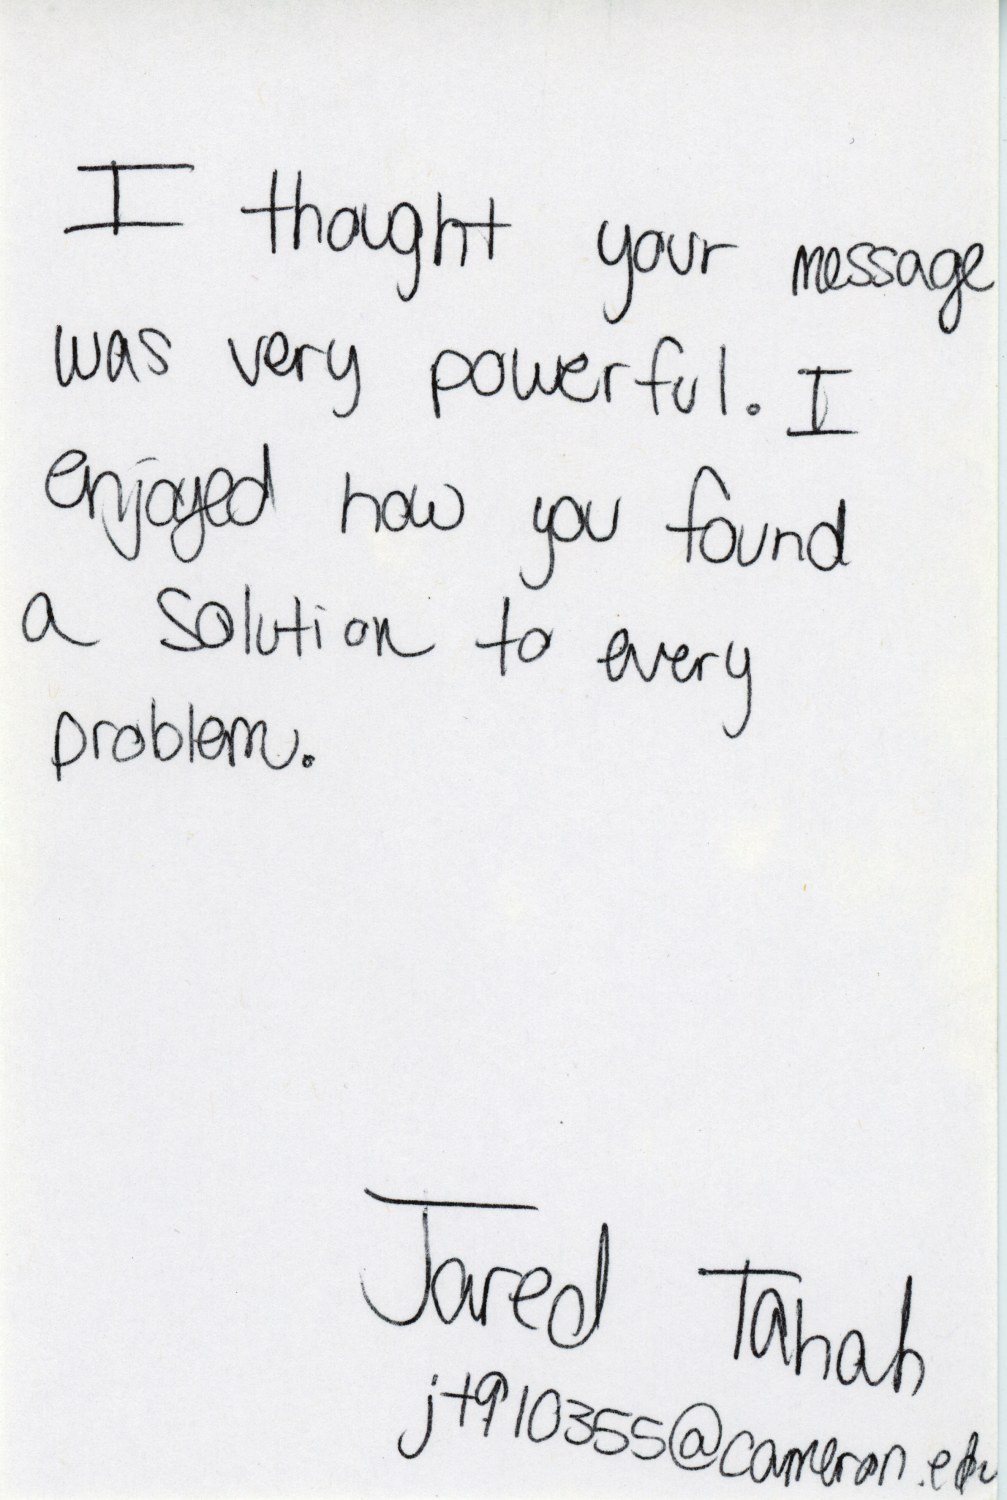 I thought your message
was very powerful. I
enjoyed how you found
a solution to every
problem.
Jared Tahah
jt910355@cameron.edu